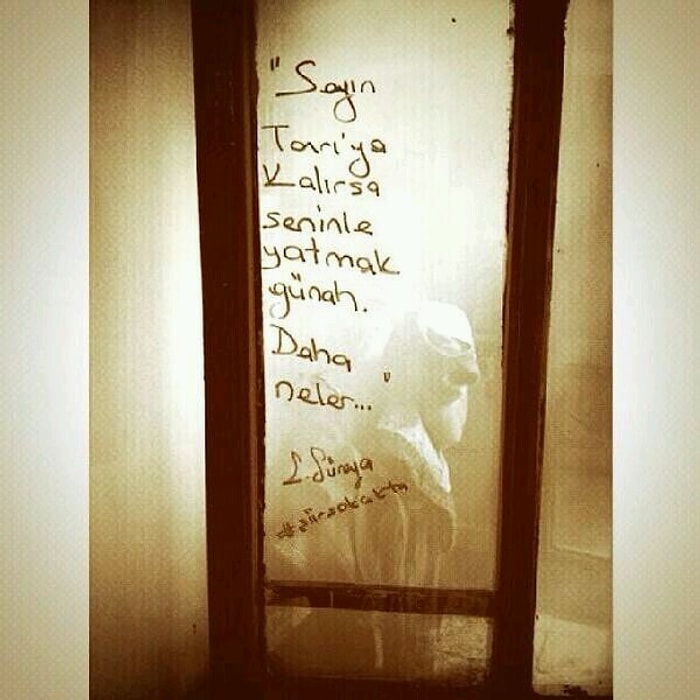 "Sayın
Tanrı'ya
Kalırsa
seninle
yatmak
günah.
Daha
neler..."
C. Süreya
#şiirsokakta